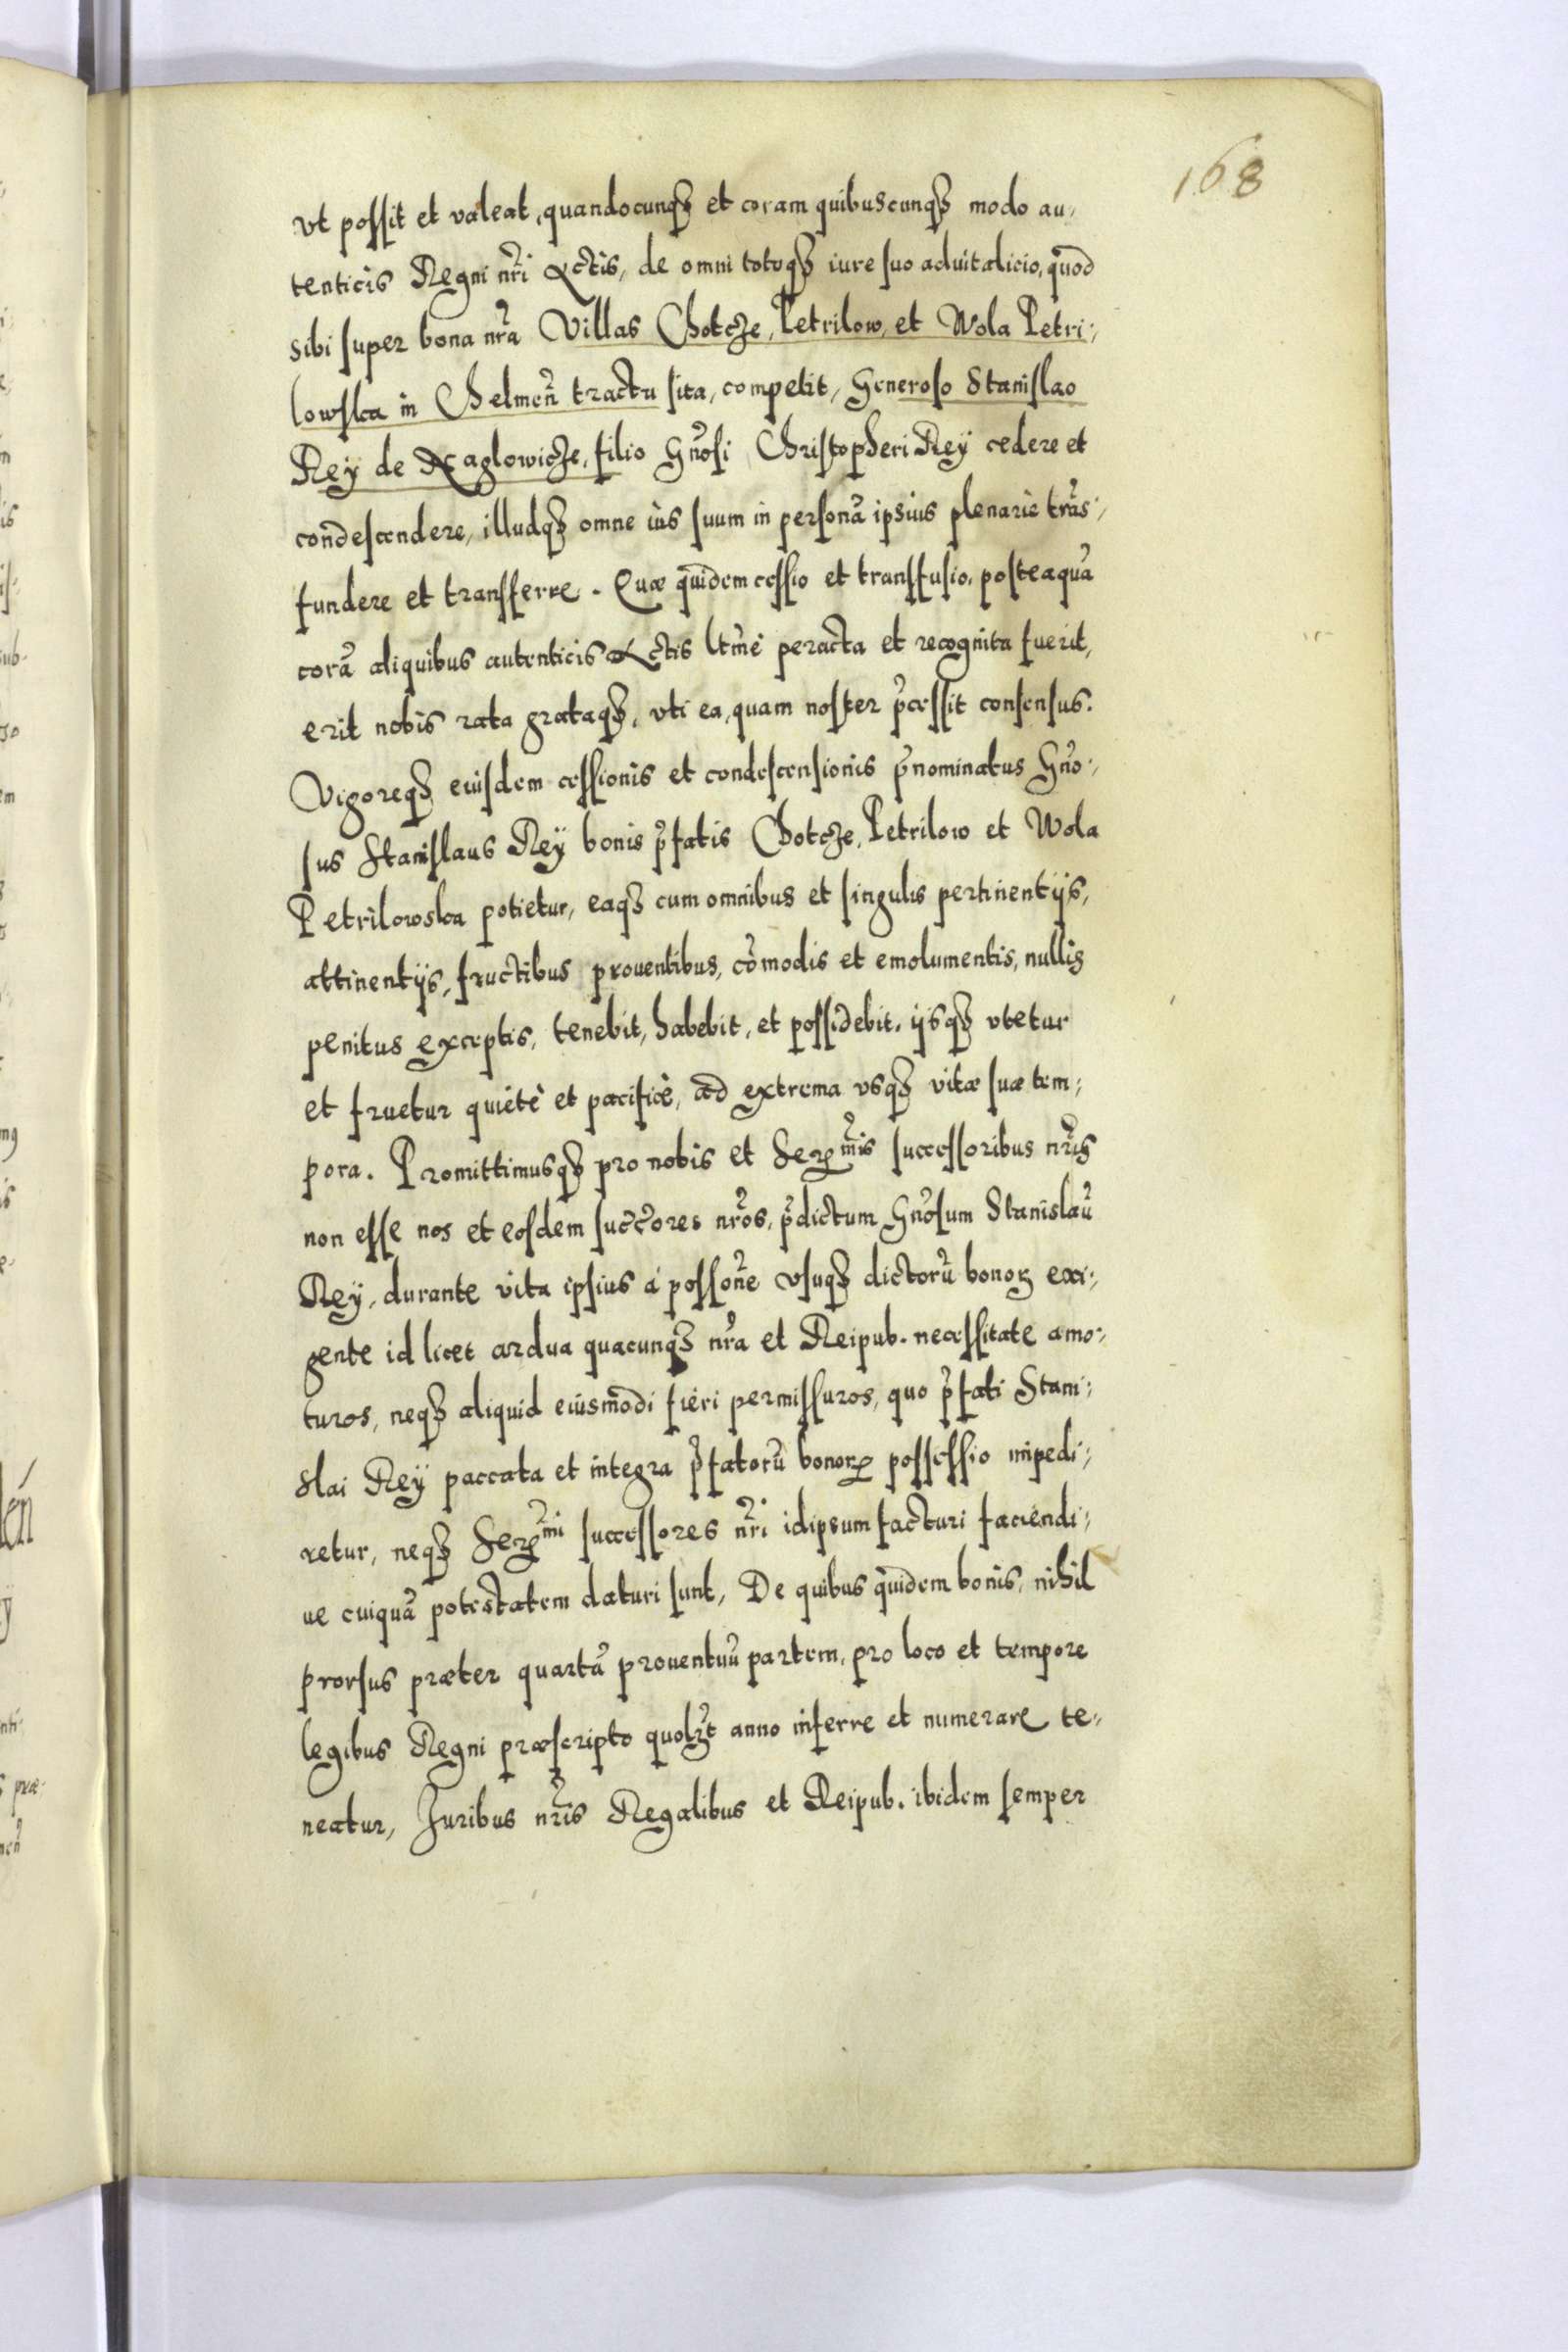 168
vt possit et valeat, quandocunqꝫ et coram quibuscunqꝫ modo au,
tenticis Regni nr̃i Actis, de omni totoqꝫ iure suo aduitalicio, quod
sibi super bona nr̃a Villas Chotcze, Petrilow, et Wola Petri:
lowska in Chelmeñ tractu sita, competit, Generoso Stanislao
Rey de Naglowicze, filio Gnõsi Christopheri Reÿ cedere et
condescendere, illudqꝫ omne ius suum in personã ipsius plenariè trãs:
fundere et transferre. Quæ quidem cessio et transfusio, posteaquã
corã aliquibus autenticis Actis ltim̃è peracta et recognita fuerit,
erit nobis rata grataqꝫ, vti ea, quam noster p̃cessit consensus.
Vigoreqꝫ eiusdem cessionis et condescensionis p̃nominatus Gnõ:
sus Stanislaus Reÿ bonis p̃fatis Chotcze, Petrilow et Wola
Petrilowska potietur, eaqꝫ cum omnibus et singulis pertinentijs,
attinentijs, fructibus prouentibus, cõmodis et emolumentis, nullis
penitus exceptis, tenebit, habebit, et possidebit. ijsqꝫ vtetur
et fruetur quietè et pacificè, ad extrema vsqꝫ vitæ suæ tem:
pora. Promittimusqꝫ pro nobis et Serm̃is successoribus nr̃is
non esse nos et eosdem succ̃ores nr̃os, p̃dictum Gnõsum Stanislaũ
Reÿ, durante vita ipsius à possoñe vsuqꝫ dictorũ bonoꝝ exi:
gente id licet ardua quacunqꝫ nr̃a et Reipub. necessitate amo:
turos, neqꝫ aliquid eiusmodi fieri permissuros, quo p̃fati Stani:
slai Reÿ paccata et integra p̃fatorũ bonoꝝ possessio impedi:
retur, neqꝫ Serm̃i successores nr̃i idipsum facturi faciendi:
ue cuiquã potestatem daturi sunt, De quibus quidem bonis, nihil
prorsus præter quartã prouentuũ partem, pro loco et tempore
legibus Regni præscripto quolꝫt anno inferre et numerare te:
neatur, Juribus nr̃is Regalibus et Reipub. ibidem semper